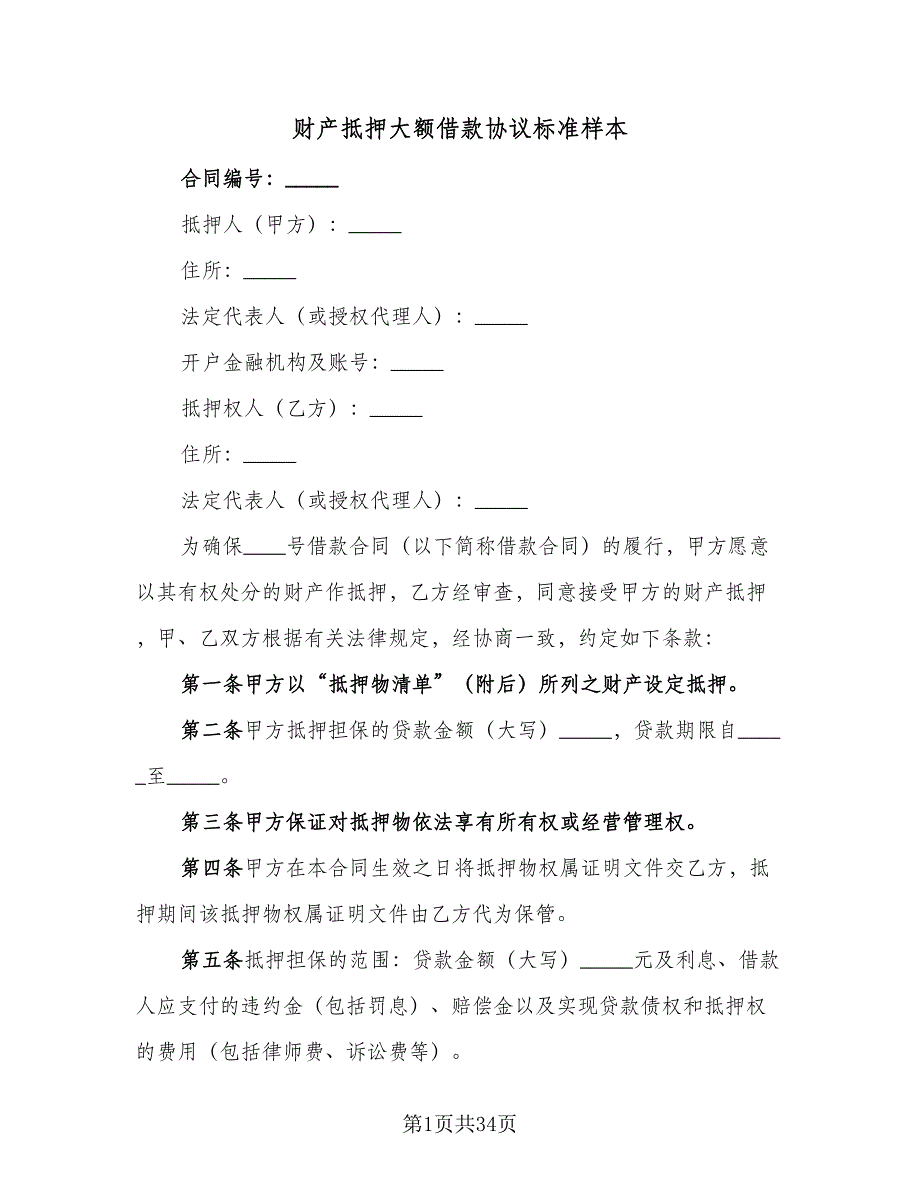 财产抵押大额借款协议标准样本
合同编号：_____
抵押人（甲方）：_____
住所：_____
法定代表人（或授权代理人）：_____
开户金融机构及账号：_____
抵押权人（乙方）：_____
住所：_____
法定代表人（或授权代理人）：_____
为确保____号借款合同（以下简称借款合同）的履行，甲方愿意
以其有权处分的财产作抵押，乙方经审查，同意接受甲方的财产抵押
，甲、乙双方根据有关法律规定，经协商一致，约定如下条款：
第一条甲方以“抵押物清单”（附后）所列之财产设定抵押。
第二条甲方抵押担保的贷款金额（大写）_____，贷款期限自____
_至_____。
第三条甲方保证对抵押物依法享有所有权或经营管理权。
第四条甲方在本合同生效之日将抵押物权属证明文件交乙方，抵
押期间该抵押物权属证明文件由乙方代为保管。
第五条抵押担保的范围：贷款金额（大写）_____元及利息、借款
人应支付的违约金（包括罚息）、赔偿金以及实现贷款债权和抵押权
的费用（包括律师费、诉讼费等）。
第1页共34页